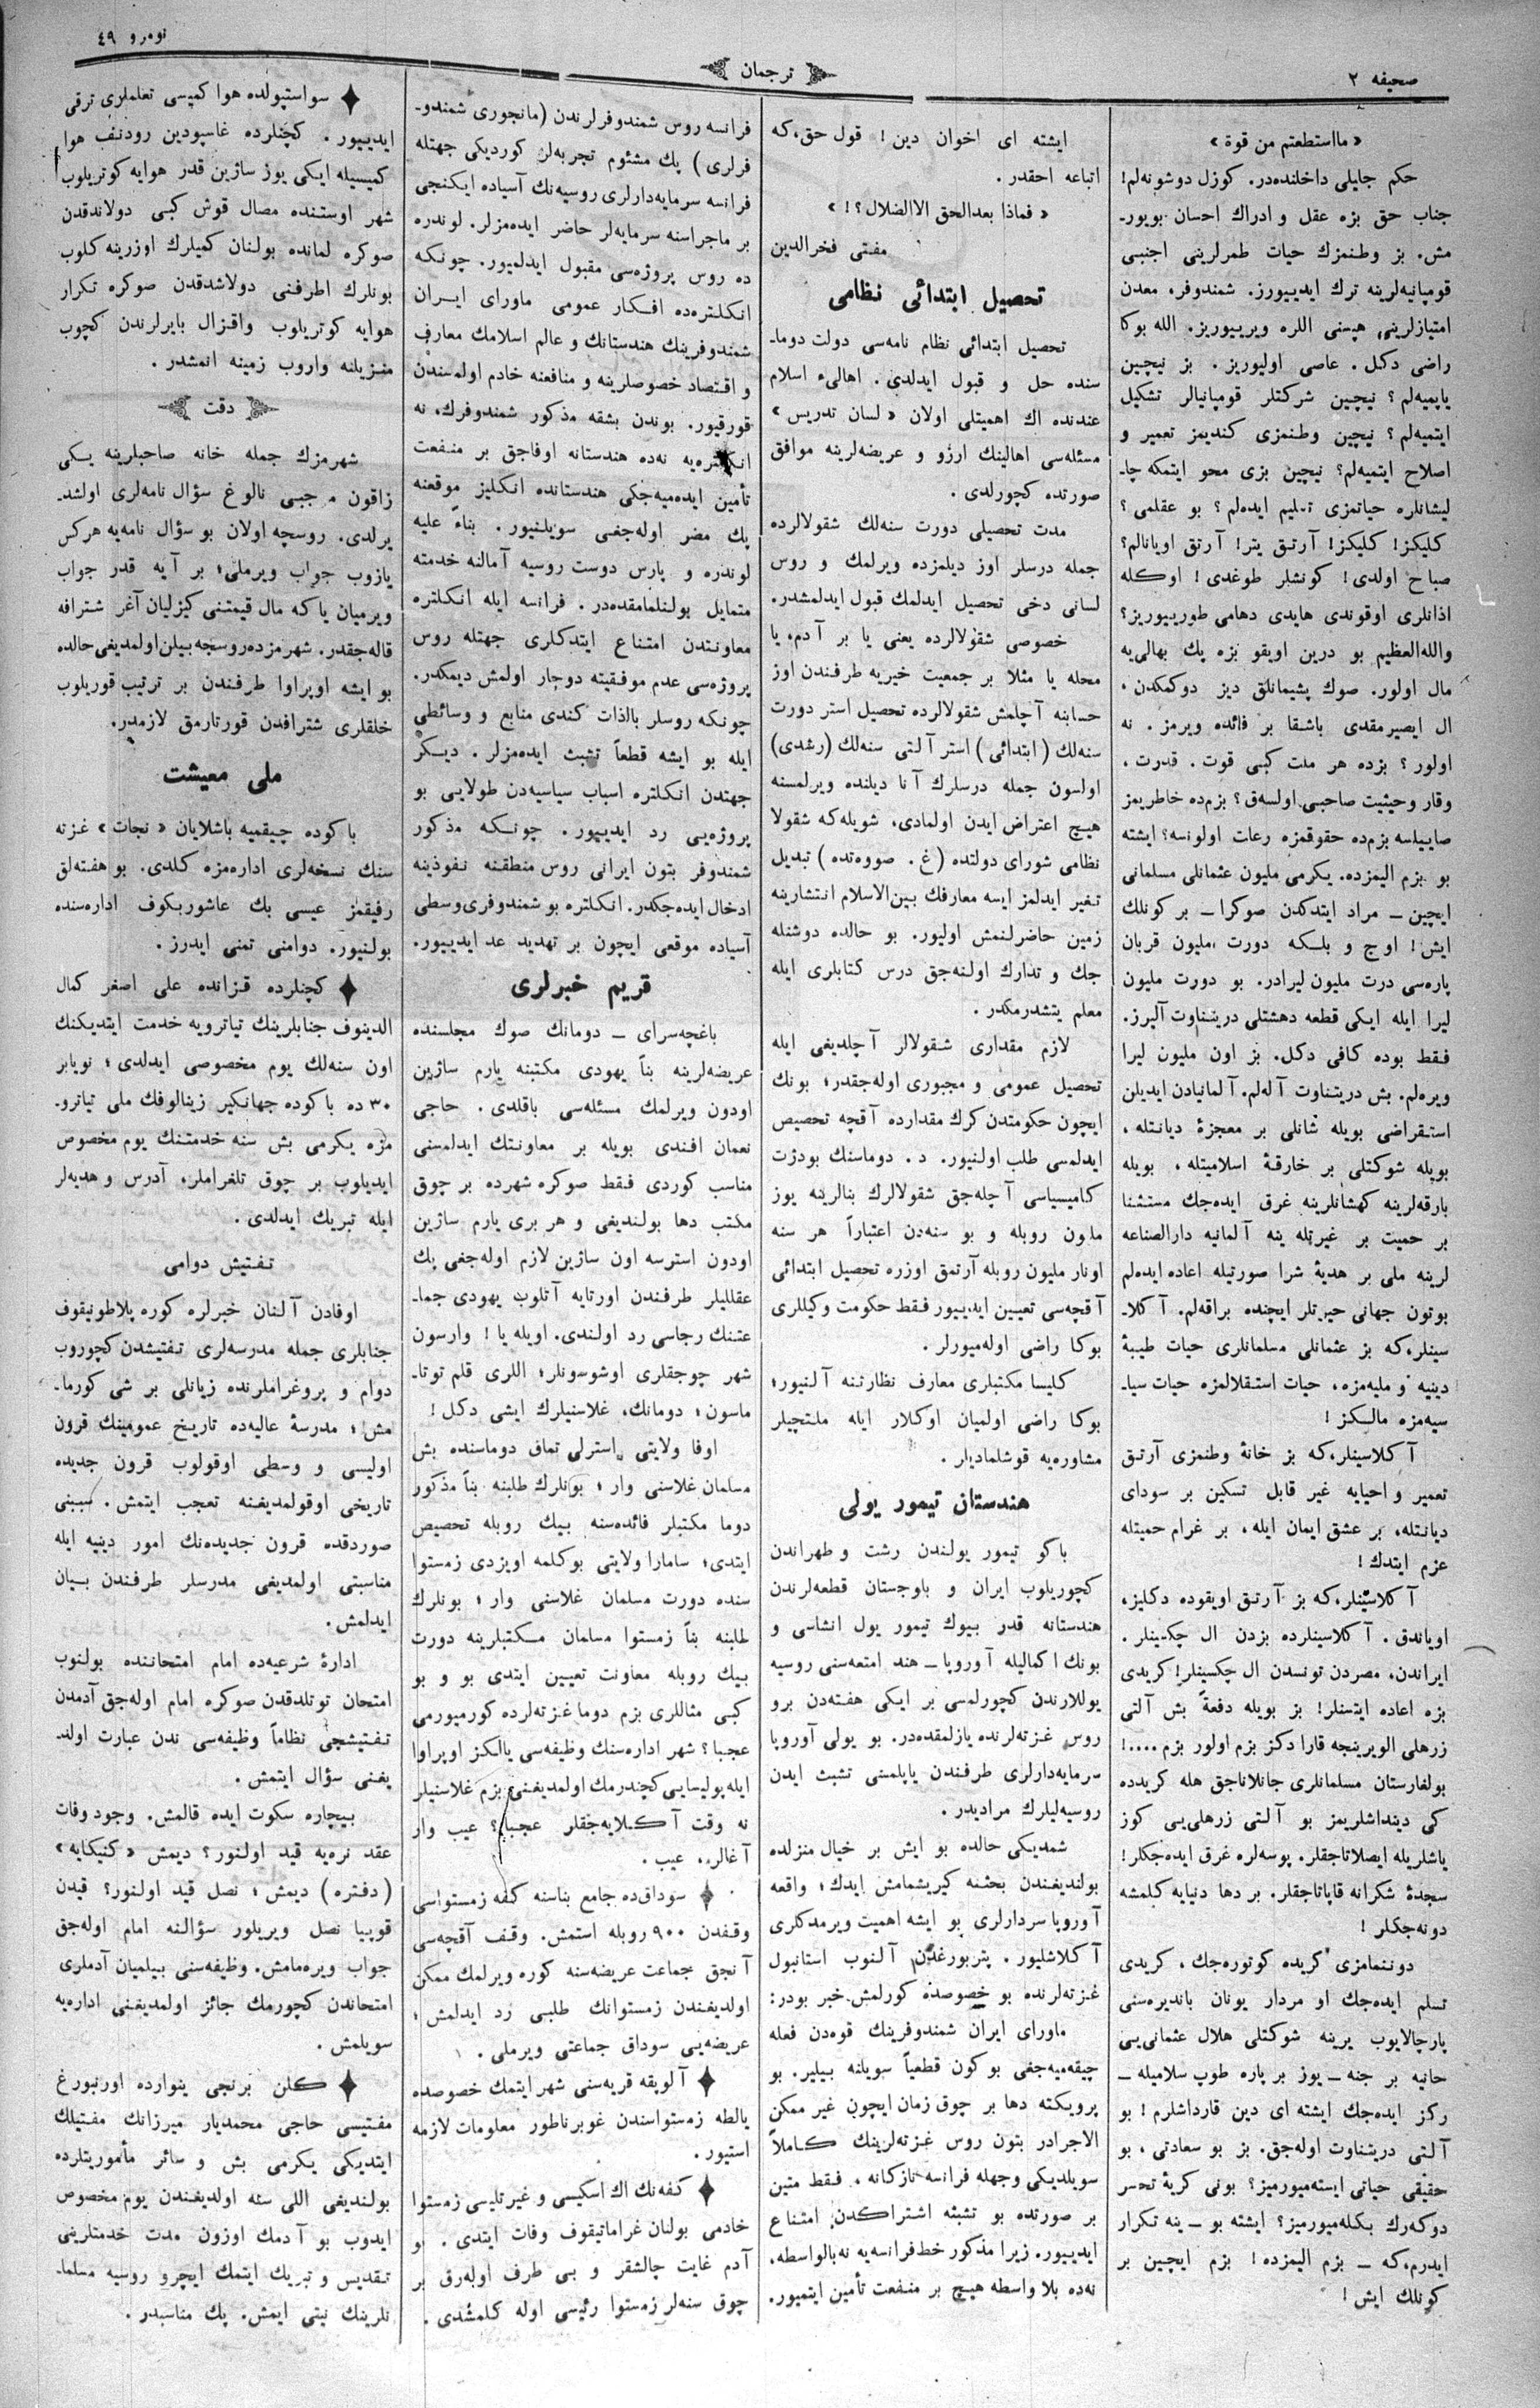 صحیفه ۲
ترجمان
نومرو ٤٩
« مااستطعتم من قوة »
حكم جلیلی داخلنده‌در. كوزل دوشونه‌لم!
جناب حق بزه عقل و ادراك احسان بویور-
مش. بز وطنمزك حیات طمرلرینی اجنبی
قومپانیه‌لرینه ترك ایدییورز. شمندوفر، معدن
امتیازلرینی هپسنی اللره ویرییوریز. الله بوكا
راضی دكل. عاصی اولیوریز. بز نیچین
یاپمیه‌لم؟ نیچین شركتلر قومپانیالر تشكیل
ایتمیه‌لم؟ نیچین وطنمزی كندیمز تعمیر و
اصلاح ایتمیه‌لم؟ نیچین بزی محو ایتمكه چا-
لیشانلره حیاتمزی تسلیم ایده‌لم؟ بو عقلمی؟
كلیكز! كلیكز! آرتق یتر! آرتق اویانالم؟
صباح اولدی! كونشلر طوغدی! اوكله
اذانلری اوقوندی هایدی دهامی طورییوریز؟
والله‌العظیم بو درین اویقو بزه پك بهالی‌یه
مال اولور. صوك پشیمانلق دیز دوكمكدن،
ال ایصیرمقدی باشقا بر فائده ویرمز. نه
اولور؟ بزده هر ملت كبی قوت. قدرت،
وقار وحیثیت صاحبی اولسه‌ق؟ بزم‌ده خاطریمز
صاییلسه بزم‌ده حقوقمزه رعات اولونسه؟ ایشته
بو بزم الیمزده. یكرمی ملیون عثمانلی مسلمانی
ایچین — مراد ایتدكدن صوكرا — بر كونلك
ایش! اوج و بلكه دورت ملیون قربان
پاره‌سی درت ملیون لیرادر. بو دورت ملیون
لیرا ایله ایكی قطعه دهشتلی دریتناوت آلیرز.
فقط بوده كافی دكل. بز اون ملیون لیرا
ویره‌لم. بش دریتناوت آله‌لم. آلمانیادن ایدیلن
استقراضی بویله شانلی بر معجزۀ دیانتله،
بویله شوكتلی بر خارقۀ اسلامیتله، بویله
بارقه‌لرینه كهشانلرینه غرق ایده‌جك مستثنا
بر حمیت بر غیرتله ینه آلمانیه دارالصناعه
لرینه ملی بر هدیۀ شرا صورتیله اعاده ایده‌لم
بوتون جهانی حیرتلر ایچنده براقه‌لم. آكلا-
سینلر، كه بز عثمانلی مسلمانلری حیات طیبۀ
دینیه و ملیه‌مزه، حیات استقلالمزه حیات سیا-
سیه‌مزه مالكز!
آكلاسینلر، كه بز خانۀ وطنمزی آرتق
تعمیر و احیایه غیر قابل تسكین بر سودای
دیانتله، بر عشق ایمان ایله، بر غرام حمیتله
عزم ایتدك!
آكلاسینلر، كه بز آرتق اویقوده دكلیز،
اویاندق. آكلاسینلرده بزدن ال چكسینلر.
ایراندن، مصردن تونسدن ال چكسینلر! كریدی
بزه اعاده ایتسنلر! بز بویله دفعةً بش آلتی
زرهلی الویرینجه قارا دكز بزم اولور بزم....!
بولغارستان مسلمانلری جانلاناجق هله كریدده
كی دینداشلریمز بو آلتی زرهلی‌یی كوز
یاشلریله ایصلاتاجقلر. پوسه‌لره غرق ایده‌جكلر!
سجدۀ شكرانه قاپاناجقلر. بر دها دنیایه كلمشه
دونه‌جكلر!
دوننمامزی كریده كوتوره‌جك، كریدی
تسلم ایده‌جك او مردار یونان باندیره‌سنی
پارچالایوب یرینه شوكتلی هلال عثمانی‌یی
حانیه بر جنه — یوز بر پاره طوپ سلامیله —
ركز ایده‌جك ایشته ای دین قارداشلرم! بو
آلتی دریتناوت اوله‌جق. بز بو سعادتی، بو
حقیقی حیاتی ایسته‌میورمیز؟ بونی كریۀ تحسر
دوكه‌رك بكله‌میورمیز؟ ایشته بو — ینه تكرار
ایدرم، كه — بزم الیمزده! بزم ایچین بر
كونلك ایش!
ایشته ای اخوان دین! قول حق، كه
اتباعه احقدر.
« فماذا بعدالحق الاالضلال؟! »
مفتی فخرالدین
تحصیل ابتدائی نظامی
تحصیل ابتدائی نظام نامه‌سی دولت دوما-
سنده حل و قبول ایدلدی. اهالیء اسلام
عندنده اك اهمیتلی اولان « لسان تدریس »
مسئله‌سی اهالینك ارزو و عریضه‌لرینه موافق
صورتده كچورلدی.
مدت تحصیلی دورت سنه‌لك شقولالرده
جمله درسلر اوز دیلمزده ویرلمك و روس
لسانی دخی تحصیل ایدلمك قبول ایدلمشدر.
خصوصی شقولالرده یعنی یا بر آدم، یا
محله یا مثلا بر جمعیت خیریه طرفندن اوز
حسابنه آچلمش شقولالرده تحصیل استر دورت
سنه‌لك (ابتدائی) استر آلتی سنه‌لك (رشدی)
اولسون جمله درسلرك آنا دیلنده ویرلمسنه
هیچ اعتراض ایدن اولمادی، شویله‌كه شقولا
نظامی شورای دولتده (غ. صووه‌تده) تبدیل
تغیر ایدلمز ایسه معارفك بین‌الاسلام انتشارینه
زمین حاضرلنمش اولیور. بو حالده دوشنله
جك و تدارك اولنه‌جق درس كتابلری ایله
معلم یتشدرمكدر.
لازم مقداری شقولالر آچلدیغی ایله
تحصیل عمومی و مجبوری اوله‌جقدر؛ بونك
ایچون حكومتدن كرك مقدارده آقچه تخصیص
ایدلمسی طلب اولنیور. د. دوماسنك بودژت
كامیسیاسی آچله‌جق شقولالرك بنالرینه یوز
ملیون روبله و بو سنه‌دن اعتباراً هر سنه
اونار ملیون روبله آرتمق اوزره تحصیل ابتدائی
آقچه‌سی تعیین ایدییور فقط حكومت وكیللری
بوكا راضی اوله‌میورلر.
كلیسا مكتبلری معارف نظارتنه آلنیور؛
بوكا راضی اولمیان اوكلار ایله ملتچیلر
مشاوره‌یه قوشلمادیلر.
هندستان تیمور یولی
باكو تیمور یولندن رشت و طهراندن
كچوریلوب ایران و بلوجستان قطعه‌لرندن
هندستانه قدر بیوك تیمور یول انشاسی و
بونك اكمالیله آوروپا — هند امتعه‌سنی روسیه
یوللارندن كچورلمسی بر ایكی هفته‌دن برو
روس غزته‌لرنده یازلمقده‌در. بو یولی آوروپا
سرمایه‌دارلری طرفندن یاپلمسنی تشبث ایدن
روسیه‌لیلرك مرادیدر.
شمدیكی حالده بو ایش بر خیال منزلنده
بولندیغندن بحثنه كیریشمامش ایدك؛ واقعه
آوروپا سردارلری بو ایشه اهمیت ویرمدكلری
آكلاشلیور. پتربورغدن آلنوب استانبول
غزته‌لرنده بو خصوصده كورلمش خبر بودر:
ماورای ایران شمندوفرینك قوه‌دن فعله
چیقه‌میه‌جغی بوكون قطعیاً سویلنه بیلیر. بو
پرویكته دها بر چوق زمان ایچون غیر ممكن
الاجرادر بتون روس غزته‌لرینك كاملاً
سویلدیكی وجهله فرانسه نازكانه، فقط متین
بر صورتده بو تشبثه اشتراكدن امتناع
ایدییور. زیرا مذكور خط فرانسه‌یه نه‌بالواسطه،
نه‌ده بلا واسطه هیچ بر منفعت تأمین ایتمیور.
فرانسه روس شمندوفرلرندن (مانجوری شمندو-
فرلری) پك مشئوم تجربه‌لر كوردیكی جهتله
فرانسه سرمایه‌دارلری روسیه‌نك آسیاده ایكنجی
بر ماجراسنه سرمایه‌لر حاضر ایده‌مزلر. لوندره
ده روس پروژه‌سی مقبول ایدلمیور. چونكه
انكلتره‌ده افكار عمومی ماورای ایران
شمندوفرینك هندستانك و عالم اسلامك معارف
و اقتصاد خصوصلرینه و منافعنه خادم اولمسندن
قورقیور. بوندن بشقه مذكور شمندوفرك، نه
انكلتره‌یه نه‌ده هندستانه اوفاجق بر منفعت
تأمین ایده‌میه‌جكی هندستانده انكلیز موقعنه
پك مضر اوله‌جغی سویلنیور. بناءً علیه
لوندره و پارس دوست روسیه آمالنه خدمته
متمایل بولنلمامقده‌در. فرانسه ایله انكلتره
معاونتدن امتناع ایتدكلری جهتله روس
پروژه‌سی عدم موفقیته دوچار اولمش دیمكدر.
چونكه روسلر بالذات كندی منابع و وسائطی
ایله بو ایشه قطعاً تشبث ایده‌مزلر. دیكر
جهتدن انكلتره اسباب سیاسیه‌دن طولایی بو
پروژه‌یی رد ایدییور. چونكه مذكور
شمندوفر بتون ایرانی روس منطقنه نفوذینه
ادخال ایده‌جكدر. انكلتره بو شمندوفری وسطی
آسیاده موقعی ایچون بر تهدید عد ایدییور.
قریم خبرلری
باغچه‌سرای — دومانك صوك مجلسنده
عریضه‌لرینه بناً یهودی مكتبنه یارم ساژین
اودون ویرلمك مسئله‌سی باقلدی. حاجی
نعمان افندی بویله بر معاونتك ایدلمسنی
مناسب كوردی فقط صوكره شهرده بر چوق
مكتب دها بولندیغی و هر بری یارم ساژین
اودون استرسه اون ساژین لازم اوله‌جغی پك
عقللیلر طرفندن اورتایه آتلوب یهودی جما-
عتنك رجاسی رد اولندی. اویله یا! وارسون
شهر چوجقلری اوشوسونلر؛ اللری قلم توتا-
ماسون؛ دومانك، غلاسنیلرك ایشی دكل!
اوفا ولایتی استرلی تماق دوماسنده بش
مسلمان غلاسنی وار؛ بونلرك طلبنه بناً مذكور
دوما مكتبلر فائده‌سنه بیك روبله تخصیص
ایتدی؛ سامارا ولایتی بوكلمه اویزدی زمستوا
سنده دورت مسلمان غلاسنی وار؛ بونلرك
طلبنه بناً زمستوا مسلمان مكتبلرینه دورت
بیك روبله معاونت تعیین ایتدی بو و بو
كبی مثاللری بزم دوما غزته‌لرده كورمیورمی
عجبا؟ شهر اداره‌سنك وظیفه‌سی یالكز اوپراوا
ایله پولیسایی كچندرمك اولمدیغنی بزم غلاسنیلر
نه وقت آكلایه‌جقلر عجبا؟ عیب وار
آغالر، عیب.
سوداق‌ده جامع بناسنه كفه زمستواسی
وقفدن ۹۰۰ روبله استمش. وقف آقچه‌سی
آنجق جماعت عریضه‌سنه كوره ویرلمك ممكن
اولدیغندن زمستوانك طلبی رد ایدلمش؛
عریضه‌یی سوداق جماعتی ویرملی.
آلوپقه قریه‌سنی شهر ایتمك خصوصده
یالطه زمستواسندن غوبرناطور معلومات لازمه
استیور.
كفه‌نك اك اسكیسی و غیرتلیسی زمستوا
خادمی بولنان غراماتیقوف وفات ایتدی. بو
آدم غایت چالشقر و بی طرف اوله‌رق بر
چوق سنه‌لر زمستوا رئیسی اوله كلمشدی.
سواستپولده هوا كمیسی تعلملری ترقی
ایدییور. كچنلرده غاسپودین رودنف هوا
كمیسیله ایكی یوز ساژین قدر هوایه كوتریلوب
شهر اوستنده مصال قوش كبی دولاندقدن
صوكره لمانده بولنان كمیلرك اوزرینه كلوب
بونلرك اطرفنی دولاشدقدن صوكره تكرار
هوایه كوتریلوب واقزال بایرلرندن كچوب
منزیلنه واروب زمینه انمشدر.
دقت
شهرمزك جمله خانه صاحبلرینه یكی
زاقون موجبی نالوغ سؤال نامه‌لری اولشد-
یرلدی. روسچه اولان بو سؤال نامه‌یه هركس
یازوب جواب ویرملی؛ بر آیه قدر جواب
ویرمیان یاكه مال قیمتنی كیزلیان آغر شترافه
قاله‌جقدر. شهرمزده روسچه بیلن اولمدیغی حالده
بو ایشه اوپراوا طرفندن بر ترتیب قوریلوب
خلقلری شترافدن قورتارمق لازمدر.
ملی معیشت
باكوده چیقمیه باشلایان « نجات » غزته
سنك نسخه‌لری اداره‌مزه كلدی. بو هفته‌لق
رفیقمز عیسی بك عاشوربكوف اداره‌سنده
بولنیور. دوامنی تمنی ایدرز.
كچنلرده قزانده علی اصغر كمال
الدینوف جنابلرینك تیاترویه خدمت ایتدیكنك
اون سنه‌لك یوم مخصوصی ایدلدی؛ نویابر
۳۰ ده باكوده جهانكیر زینالوفك ملی تیاترو-
مزه یكرمی بش سنه خدمتنك یوم مخصوص
ایدیلوب بر چوق تلغراملر، آدرس و هدیه‌لر
ایله تبریك ایدلدی.
تفتیش دوامی
اوفادن آلنان خبرلره كوره پلاطونیقوف
جنابلری جمله مدرسه‌لری تفتیشدن كچوروب
دوام و پروغراملرنده زیانلی بر شی كورما-
مش؛ مدرسۀ عالیه‌ده تاریخ عمومینك قرون
اولیسی و وسطی اوقولوب قرون جدیده
تاریخی اوقولمدیغنه تعجب ایتمش. سببنی
صوردقده قرون جدیده‌نك امور دینیه ایله
مناسبتی اولمدیغی مدرسلر طرفندن بیان
ایدلمش.
ادارۀ شرعیه‌ده امام امتحاننده بولنوب
امتحان توتلدقدن صوكره امام اوله‌جق آدمدن
تفتیشچی نظاماً وظیفه‌سی ندن عبارت اولد-
یغنی سؤال ایتمش.
بیچاره سكوت ایده قالمش. وجود وفات
عقد نره‌یه قید اولنور؟ دیمش « كنیكایه »
(دفتره) دیمش؛ نصل قید اولنور؟ قیدن
قوپیا نصل ویریلور سؤالنه امام اوله‌جق
جواب ویره‌مامش. وظیفه‌سنی بیلمیان آدملری
امتحاندن كچورمك جائز اولمدیغنی اداره‌یه
سویلمش.
كلن برنجی ینوارده اورنبورغ
مفتیسی حاجی محمدیار میرزانك مفتیلك
ایتدیكی یكرمی بش و سائر مأموریتلرده
بولندیغی اللی سنه اولدیغندن یوم مخصوص
ایدوب بو آدمك اوزون مدت خدمتلرینی
تقدیس و تبریك ایتمك ایچرو روسیه مسلما-
نلرینك نیتی ایمش. پك مناسبدر.